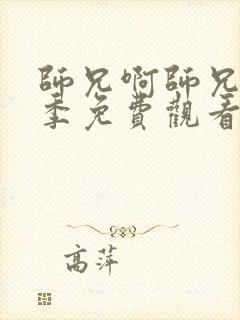 師兄啊師兄
季免費觀看
高萍